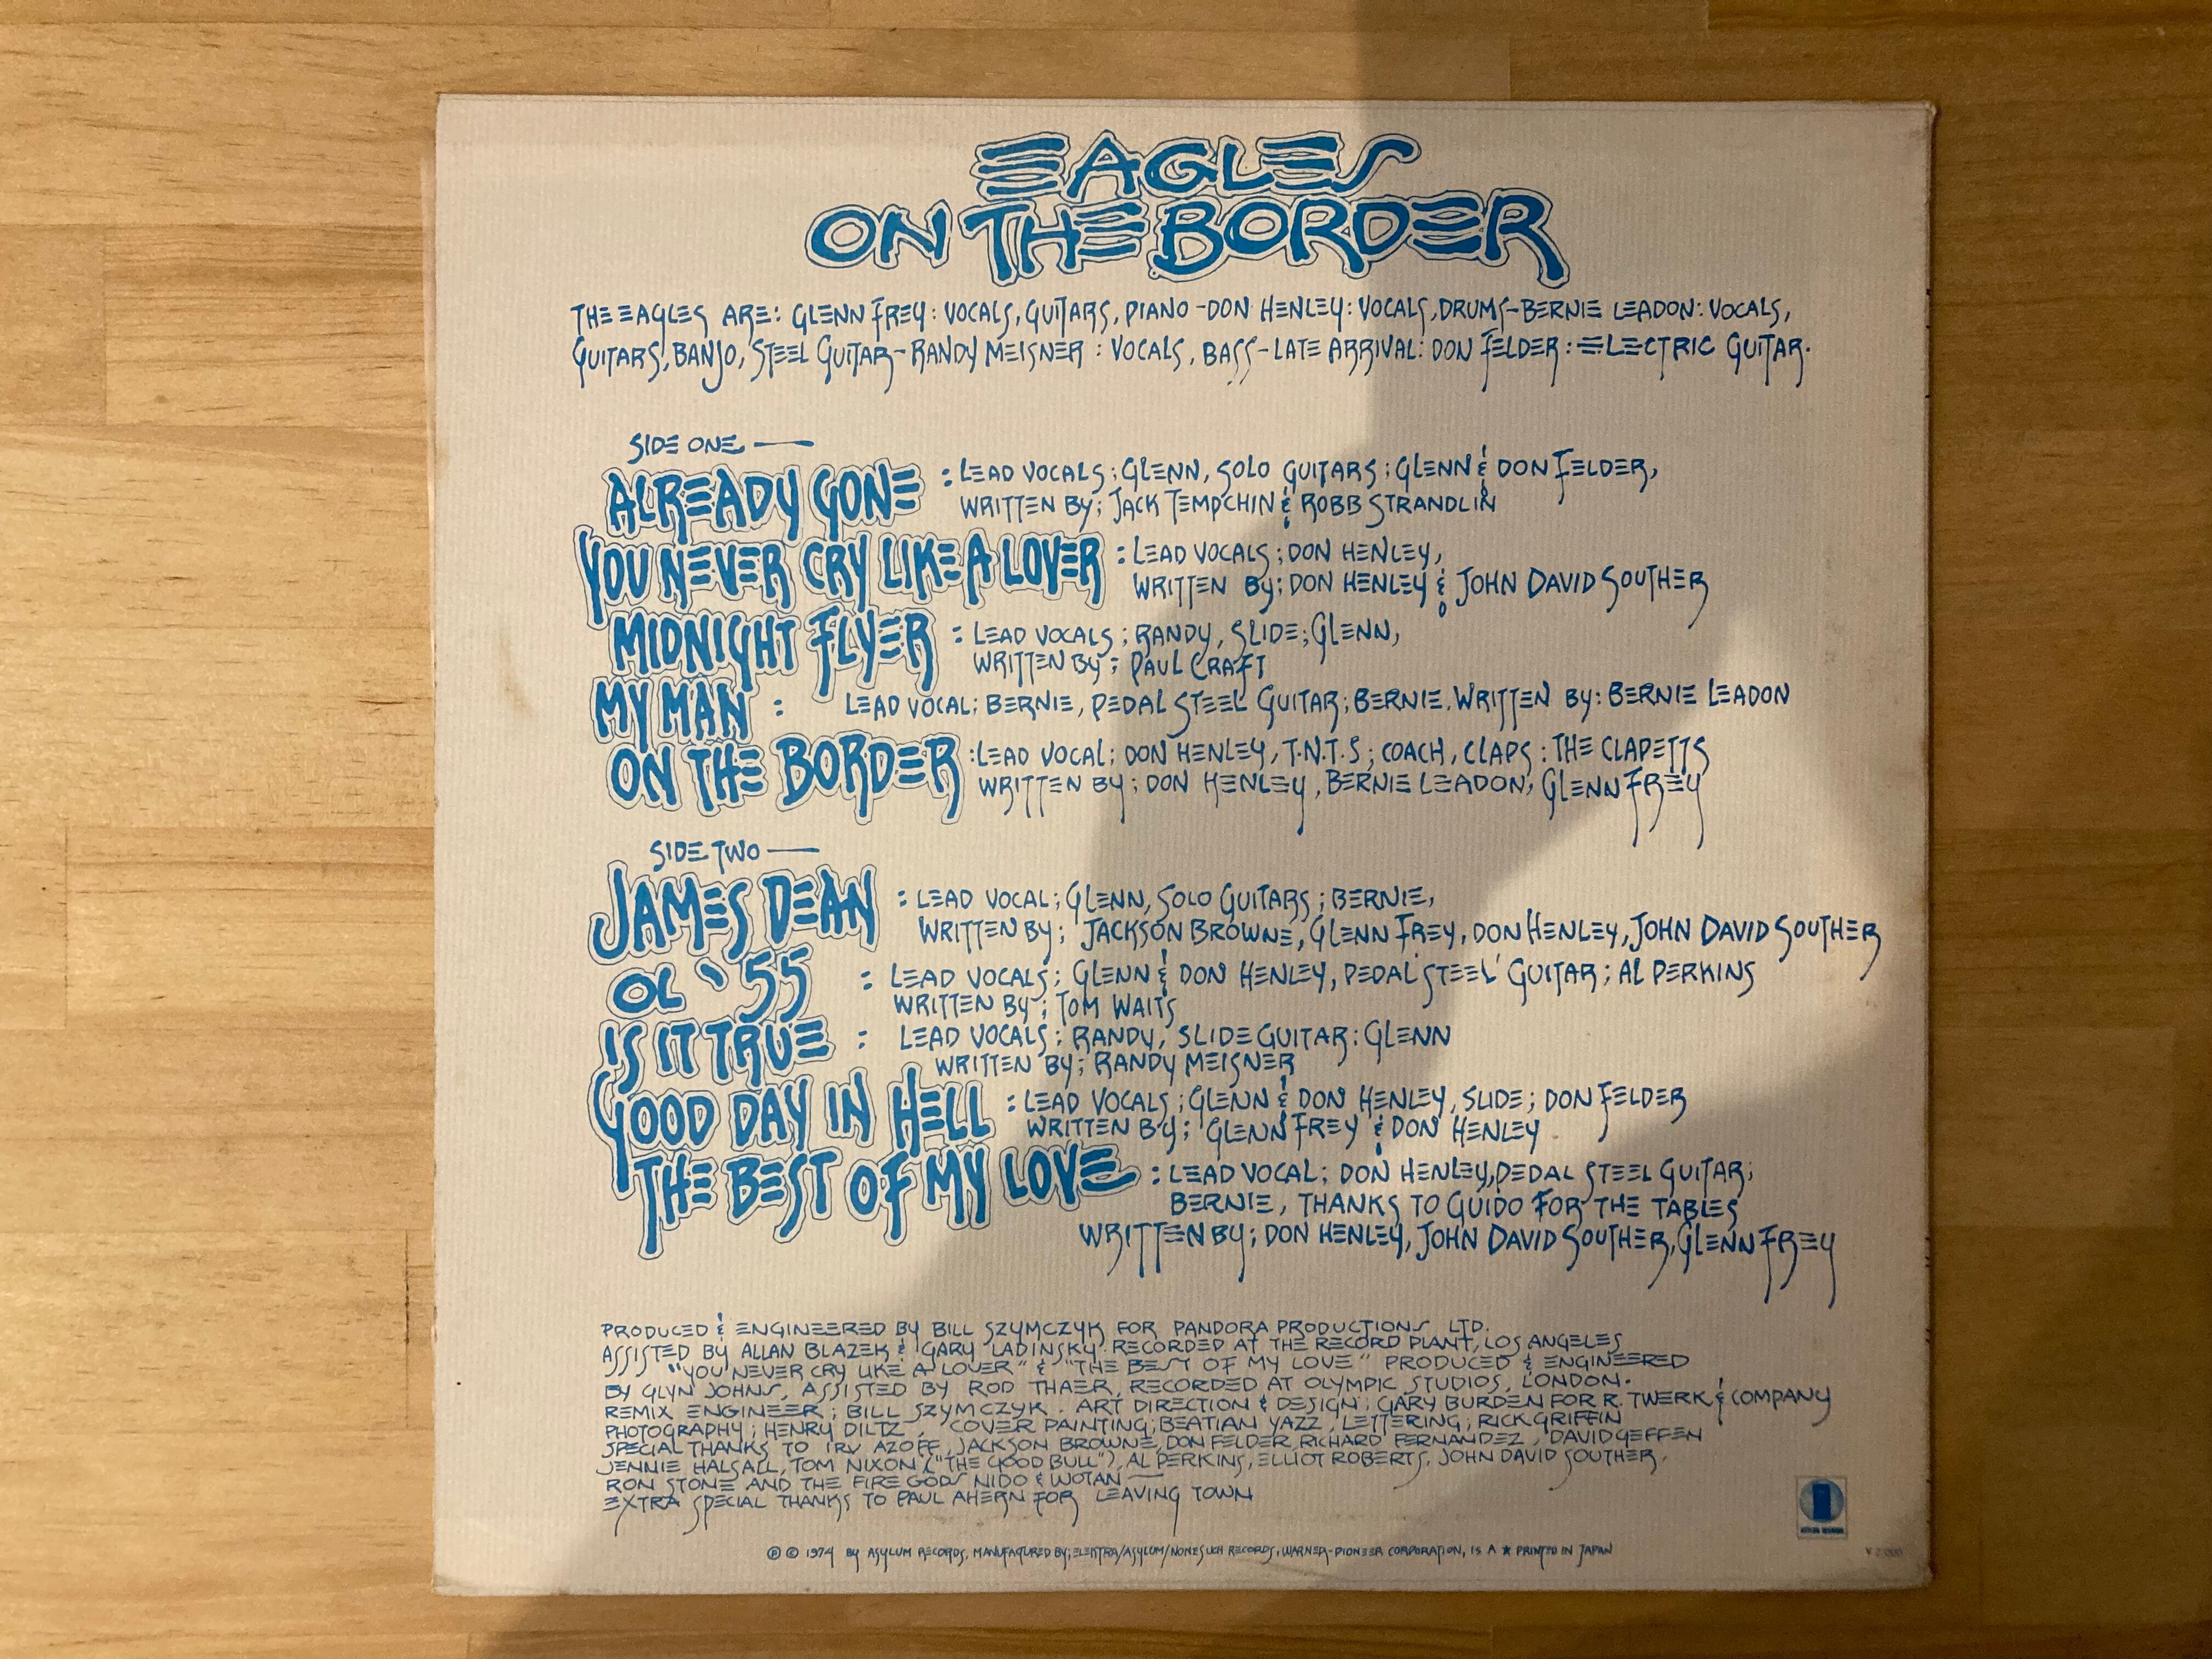 EAGLES
ON THE BORDER
THE EAGLES ARE: GLENN FREY: VOCALS, GUITARS, PIANO - DON HENLEY: VOCALS, DRUMS - BERNIE LEADON: VOCALS,
GUITARS, BANJO, STEEL GUITAR - RANDY MEISNER: VOCALS, BASS - LATE ARRIVAL: DON FELDER: ELECTRIC GUITAR.
SIDE ONE —
ALREADY GONE : LEAD VOCALS; GLENN, SOLO GUITARS; GLENN & DON FELDER,
WRITTEN BY; JACK TEMPCHIN & ROBB STRANDLIN
YOU NEVER CRY LIKE A LOVER : LEAD VOCALS; DON HENLEY,
WRITTEN BY; DON HENLEY & JOHN DAVID SOUTHER
MIDNIGHT FLYER : LEAD VOCALS; RANDY, SLIDE; GLENN,
WRITTEN BY; PAUL CRAFT
MY MAN : LEAD VOCAL; BERNIE, PEDAL STEEL GUITAR; BERNIE. WRITTEN BY: BERNIE LEADON
ON THE BORDER : LEAD VOCAL; DON HENLEY, T.N.T.S; COACH, CLAPS: THE CLAPETTS
WRITTEN BY; DON HENLEY, BERNIE LEADON, GLENN FREY
SIDE TWO —
JAMES DEAN : LEAD VOCAL; GLENN, SOLO GUITARS; BERNIE,
WRITTEN BY; JACKSON BROWNE, GLENN FREY, DON HENLEY, JOHN DAVID SOUTHER
OL '55 : LEAD VOCALS; GLENN & DON HENLEY, PEDAL STEEL GUITAR; AL PERKINS
WRITTEN BY; TOM WAITS
IS IT TRUE : LEAD VOCALS; RANDY, SLIDE GUITAR: GLENN
WRITTEN BY; RANDY MEISNER
GOOD DAY IN HELL : LEAD VOCALS; GLENN & DON HENLEY, SLIDE; DON FELDER
WRITTEN BY; GLENN FREY & DON HENLEY
THE BEST OF MY LOVE : LEAD VOCAL; DON HENLEY, PEDAL STEEL GUITAR;
BERNIE, THANKS TO GUIDO FOR THE TABLES
WRITTEN BY; DON HENLEY, JOHN DAVID SOUTHER, GLENN FREY
PRODUCED & ENGINEERED BY BILL SZYMCZYK FOR PANDORA PRODUCTIONS LTD.
ASSISTED BY ALLAN BLAZEK & GARY LADINSKY. RECORDED AT THE RECORD PLANT, LOS ANGELES
"YOU NEVER CRY LIKE A LOVER" & "THE BEST OF MY LOVE" PRODUCED & ENGINEERED
BY GLYN JOHNS, ASSISTED BY ROD THAER, RECORDED AT OLYMPIC STUDIOS, LONDON.
REMIX ENGINEER; BILL SZYMCZYK. ART DIRECTION & DESIGN; GARY BURDEN FOR R. TWERK & COMPANY
PHOTOGRAPHY; HENRY DILTZ, COVER PAINTING; BEATIAN YAZZ, LETTERING; RICK GRIFFIN
SPECIAL THANKS TO IRV AZOFF, JACKSON BROWNE, DON FELDER, RICHARD FERNANDEZ, DAVID GEFFEN
JENNIE HALSALL, TOM NIXON ("THE GOOD BULL"), AL PERKINS, ELLIOT ROBERTS, JOHN DAVID SOUTHER,
RON STONE AND THE FIRE GODS NIDO & WOTAN —
EXTRA SPECIAL THANKS TO PAUL AHERN FOR LEAVING TOWN
ASYLUM RECORDS
℗ © 1974 BY ASYLUM RECORDS, MANUFACTURED BY; ELEKTRA/ASYLUM/NONESUCH RECORDS, WARNER-PIONEER CORPORATION, IS A ★ PRINTED IN JAPAN